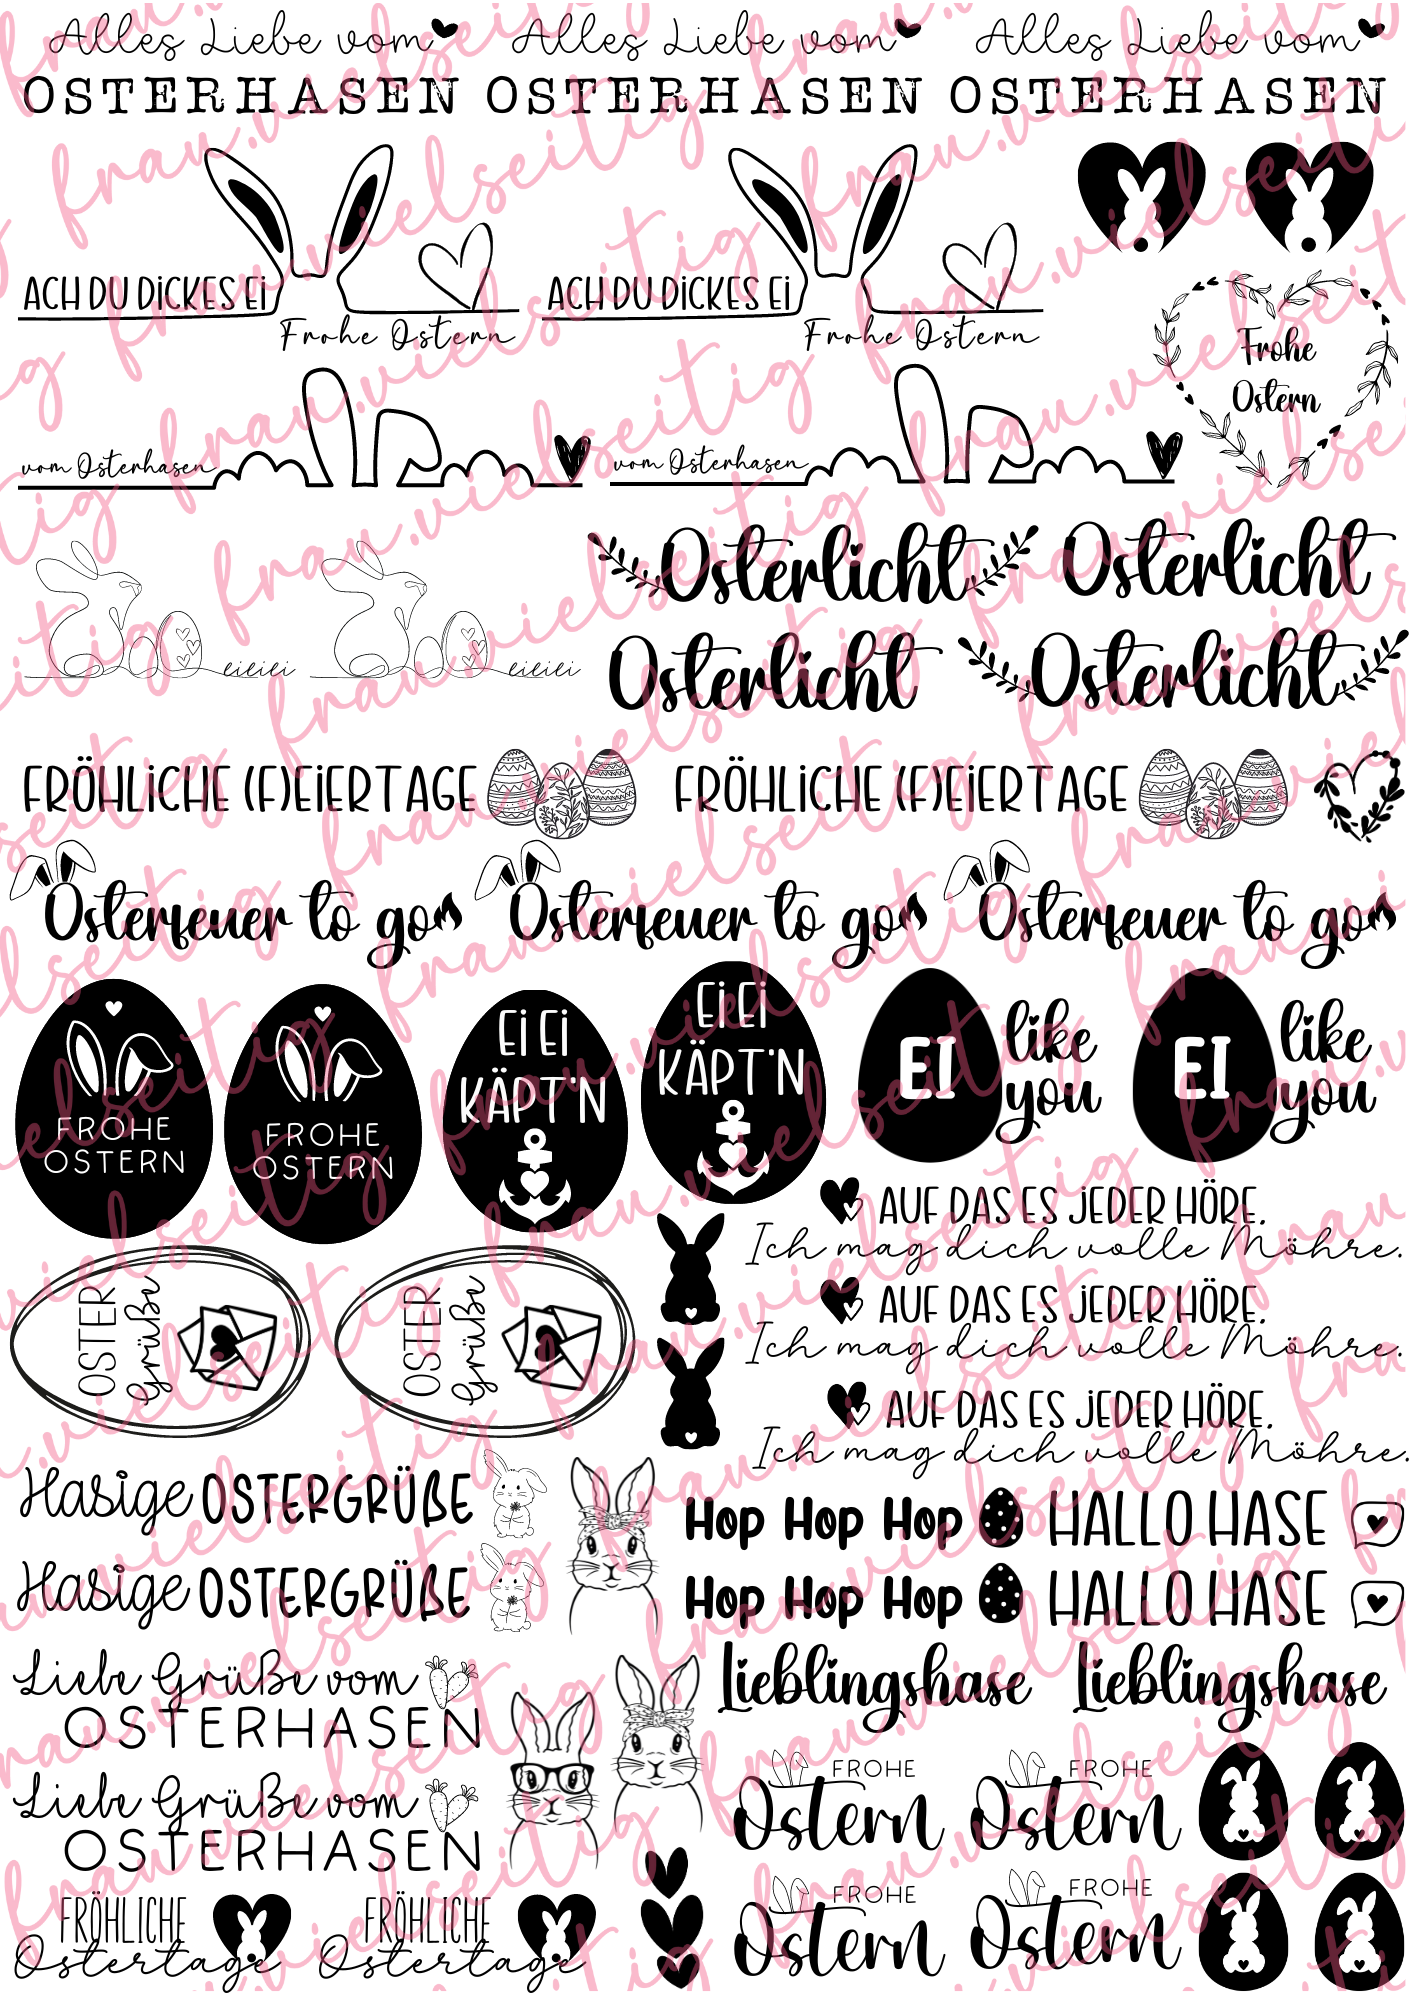 Alles Liebe vom Alles Liebe vom Alles Liebe vom
OSTERHASEN OSTERHASEN OSTERHASEN
ACH DU DICKES Ei ACH DU DICKES Ei
Frohe Ostern Frohe Ostern
Frohe
Ostern
vom Osterhasen vom Osterhasen
Osterlicht Osterlicht
eieiei eieiei
Osterlicht Osterlicht
FRÖHLICHE (F)EIERTAGE FRÖHLICHE (F)EIERTAGE
Osterfeuer to go Osterfeuer to go Osterfeuer to go
FROHE
OSTERN
FROHE
OSTERN
Ei Ei
KÄPT'N
Ei Ei
KÄPT'N
EI like
you
EI like
you
AUF DAS ES JEDER HÖRE.
Ich mag dich volle Möhre.
AUF DAS ES JEDER HÖRE.
Ich mag dich volle Möhre.
AUF DAS ES JEDER HÖRE.
Ich mag dich volle Möhre.
OSTER
Grüße
OSTER
Grüße
Hasige OSTERGRÜßE
Hasige OSTERGRÜßE
Hop Hop Hop HALLO HASE
Hop Hop Hop HALLO HASE
Liebe Grüße vom
OSTERHASEN
Liebe Grüße vom
OSTERHASEN
Lieblingshase Lieblingshase
FROHE
Ostern
FROHE
Ostern
FROHE
Ostern
FROHE
Ostern
FRÖHLICHE
Ostertage
FRÖHLICHE
Ostertage
frau.vielseitig